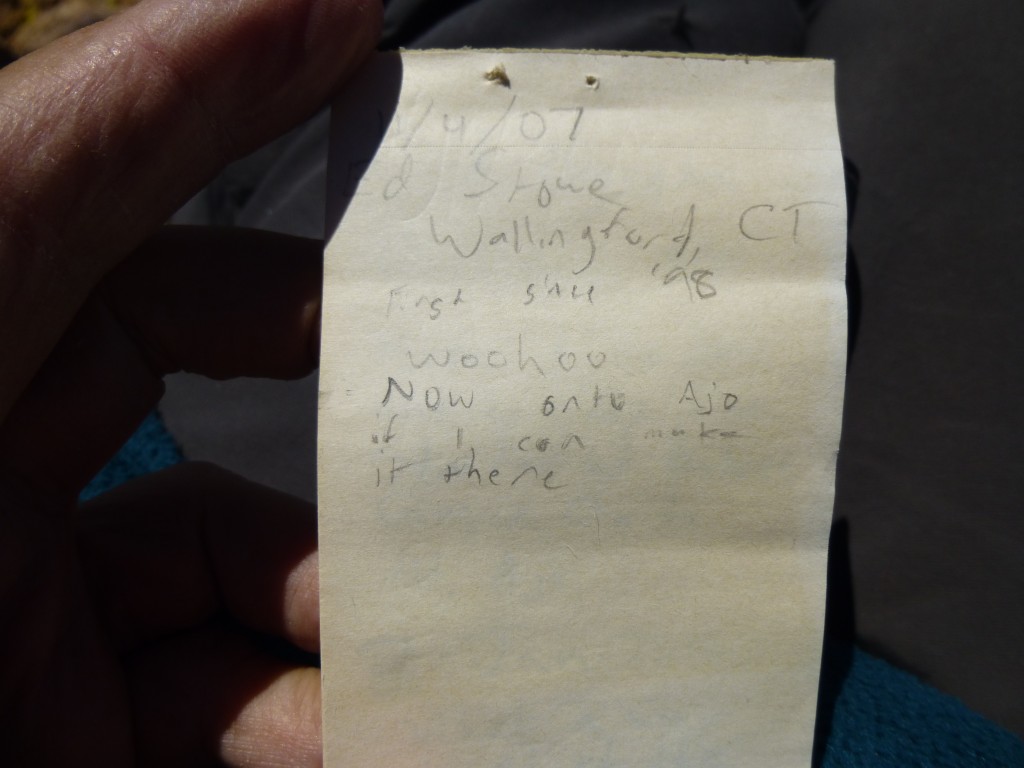 /4/07
Ed Stone
Wallingford, CT
First since '98
woohoo
Now onto Ajo
if I can make
it there